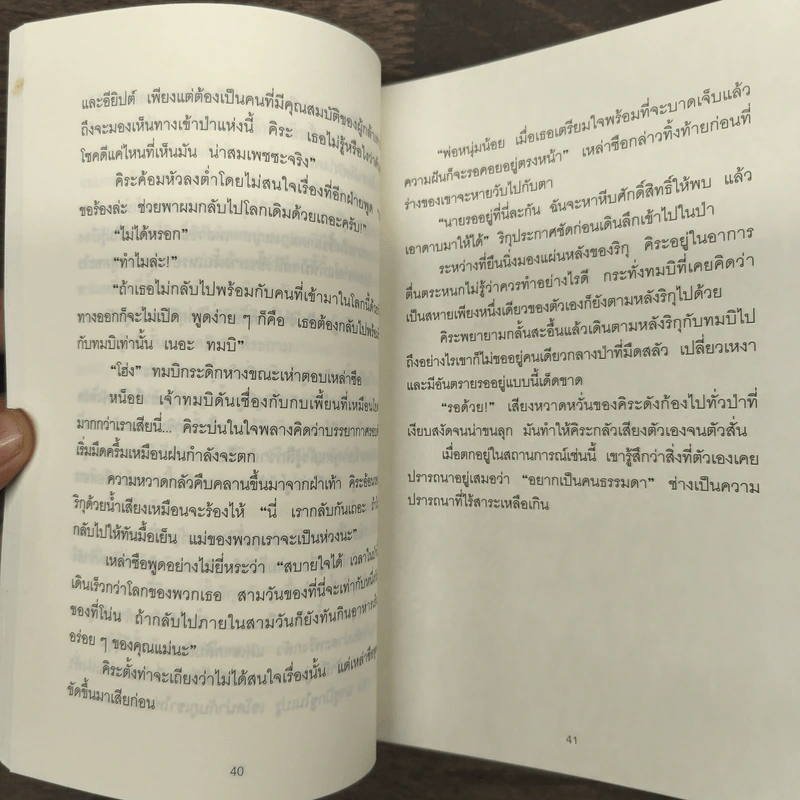 และอียิปต์ เพียงแต่ต้องเป็นคนที่มีคุณสมบัติของผู้กล้า
ถึงจะมองเห็นทางเข้าป่าแห่งนี้ คิระ เธอไม่รู้หรือไงว่า
โชคดีแค่ไหนที่เห็นมัน น่าสมเพชซะจริง”
คิระค้อมหัวลงต่ำโดยไม่สนใจเรื่องที่อีกฝ่ายพูด
ขอร้องล่ะ ช่วยพาผมกลับไปโลกเดิมด้วยเถอะครับ!”
“ไม่ได้หรอก”
“ทำไมล่ะ!”
“ถ้าเธอไม่กลับไปพร้อมกับคนที่เข้ามาในโลกนี้
ทางออกก็จะไม่เปิด พูดง่าย ๆ ก็คือ เธอต้องกลับไป
กับทมบิเท่านั้น เนอะ ทมบิ”
“โฮ่ง” ทมบิกระดิกหางขณะเห่าตอบเหล่าซือ
หน็อย เจ้าทมบิดันเชื่องกับกบเพี้ยนที่เหมือน
มากกว่าเราเสียนี่... คิระบ่นในใจพลางคิดว่าบรรยากาศ
เริ่มมืดครึ้มเหมือนฝนกำลังจะตก
ความหวาดกลัวคืบคลานขึ้นมาจากฝ่าเท้า คิระ
ริกุด้วยน้ำเสียงเหมือนจะร้องไห้ “นี่ เรากลับกันเถอะ
กลับไปให้ทันมื้อเย็น แม่ของพวกเราจะเป็นห่วงนะ”
เหล่าซือพูดอย่างไม่ยี่หระว่า “สบายใจได้ เวลา
เดินเร็วกว่าโลกของพวกเธอ สามวันของที่นี่จะเท่ากับ
ของที่โน่น ถ้ากลับไปภายในสามวันก็ยังทันกินอาหาร
อร่อย ๆ ของคุณแม่นะ”
คิระตั้งท่าจะเถียงว่าไม่ได้สนใจเรื่องนั้น แต่เหล่าซือ
ขัดขึ้นมาเสียก่อน
40
“พ่อหนุ่มน้อย เมื่อเธอเตรียมใจพร้อมที่จะบาดเจ็บแล้ว
ความฝันก็จะรอคอยอยู่ตรงหน้า” เหล่าซือกล่าวทิ้งท้ายก่อนที่
ร่างของเขาจะหายวับไปกับตา
“นายรออยู่ที่นี่ละกัน ฉันจะหาหีบศักดิ์สิทธิ์ให้พบ แล้ว
เอาดาบมาให้ได้” ริกุประกาศชัดก่อนเดินลึกเข้าไปในป่า
ระหว่างที่ยืนนิ่งมองแผ่นหลังของริกุ คิระอยู่ในอาการ
ตื่นตระหนกไม่รู้ว่าควรทำอย่างไรดี กระทั่งทมบิที่เคยคิดว่า
เป็นสหายเพียงหนึ่งเดียวของตัวเองก็ยังตามหลังริกุไปด้วย
คิระพยายามกลั้นสะอื้นแล้วเดินตามหลังริกุกับทมบิไป
ถึงอย่างไรเขาก็ไม่ขออยู่คนเดียวกลางป่าที่มืดสลัว เปลี่ยวเหงา
และมีอันตรายรออยู่แบบนี้เด็ดขาด
“รอด้วย!” เสียงหวาดหวั่นของคิระดังก้องไปทั่วป่าที่
เงียบสงัดจนน่าขนลุก มันทำให้คิระกลัวเสียงตัวเองจนตัวสั่น
เมื่อตกอยู่ในสถานการณ์เช่นนี้ เขารู้สึกว่าสิ่งที่ตัวเองเคย
ปรารถนาอยู่เสมอว่า “อยากเป็นคนธรรมดา” ช่างเป็นความ
ปรารถนาที่ไร้สาระเหลือเกิน
41